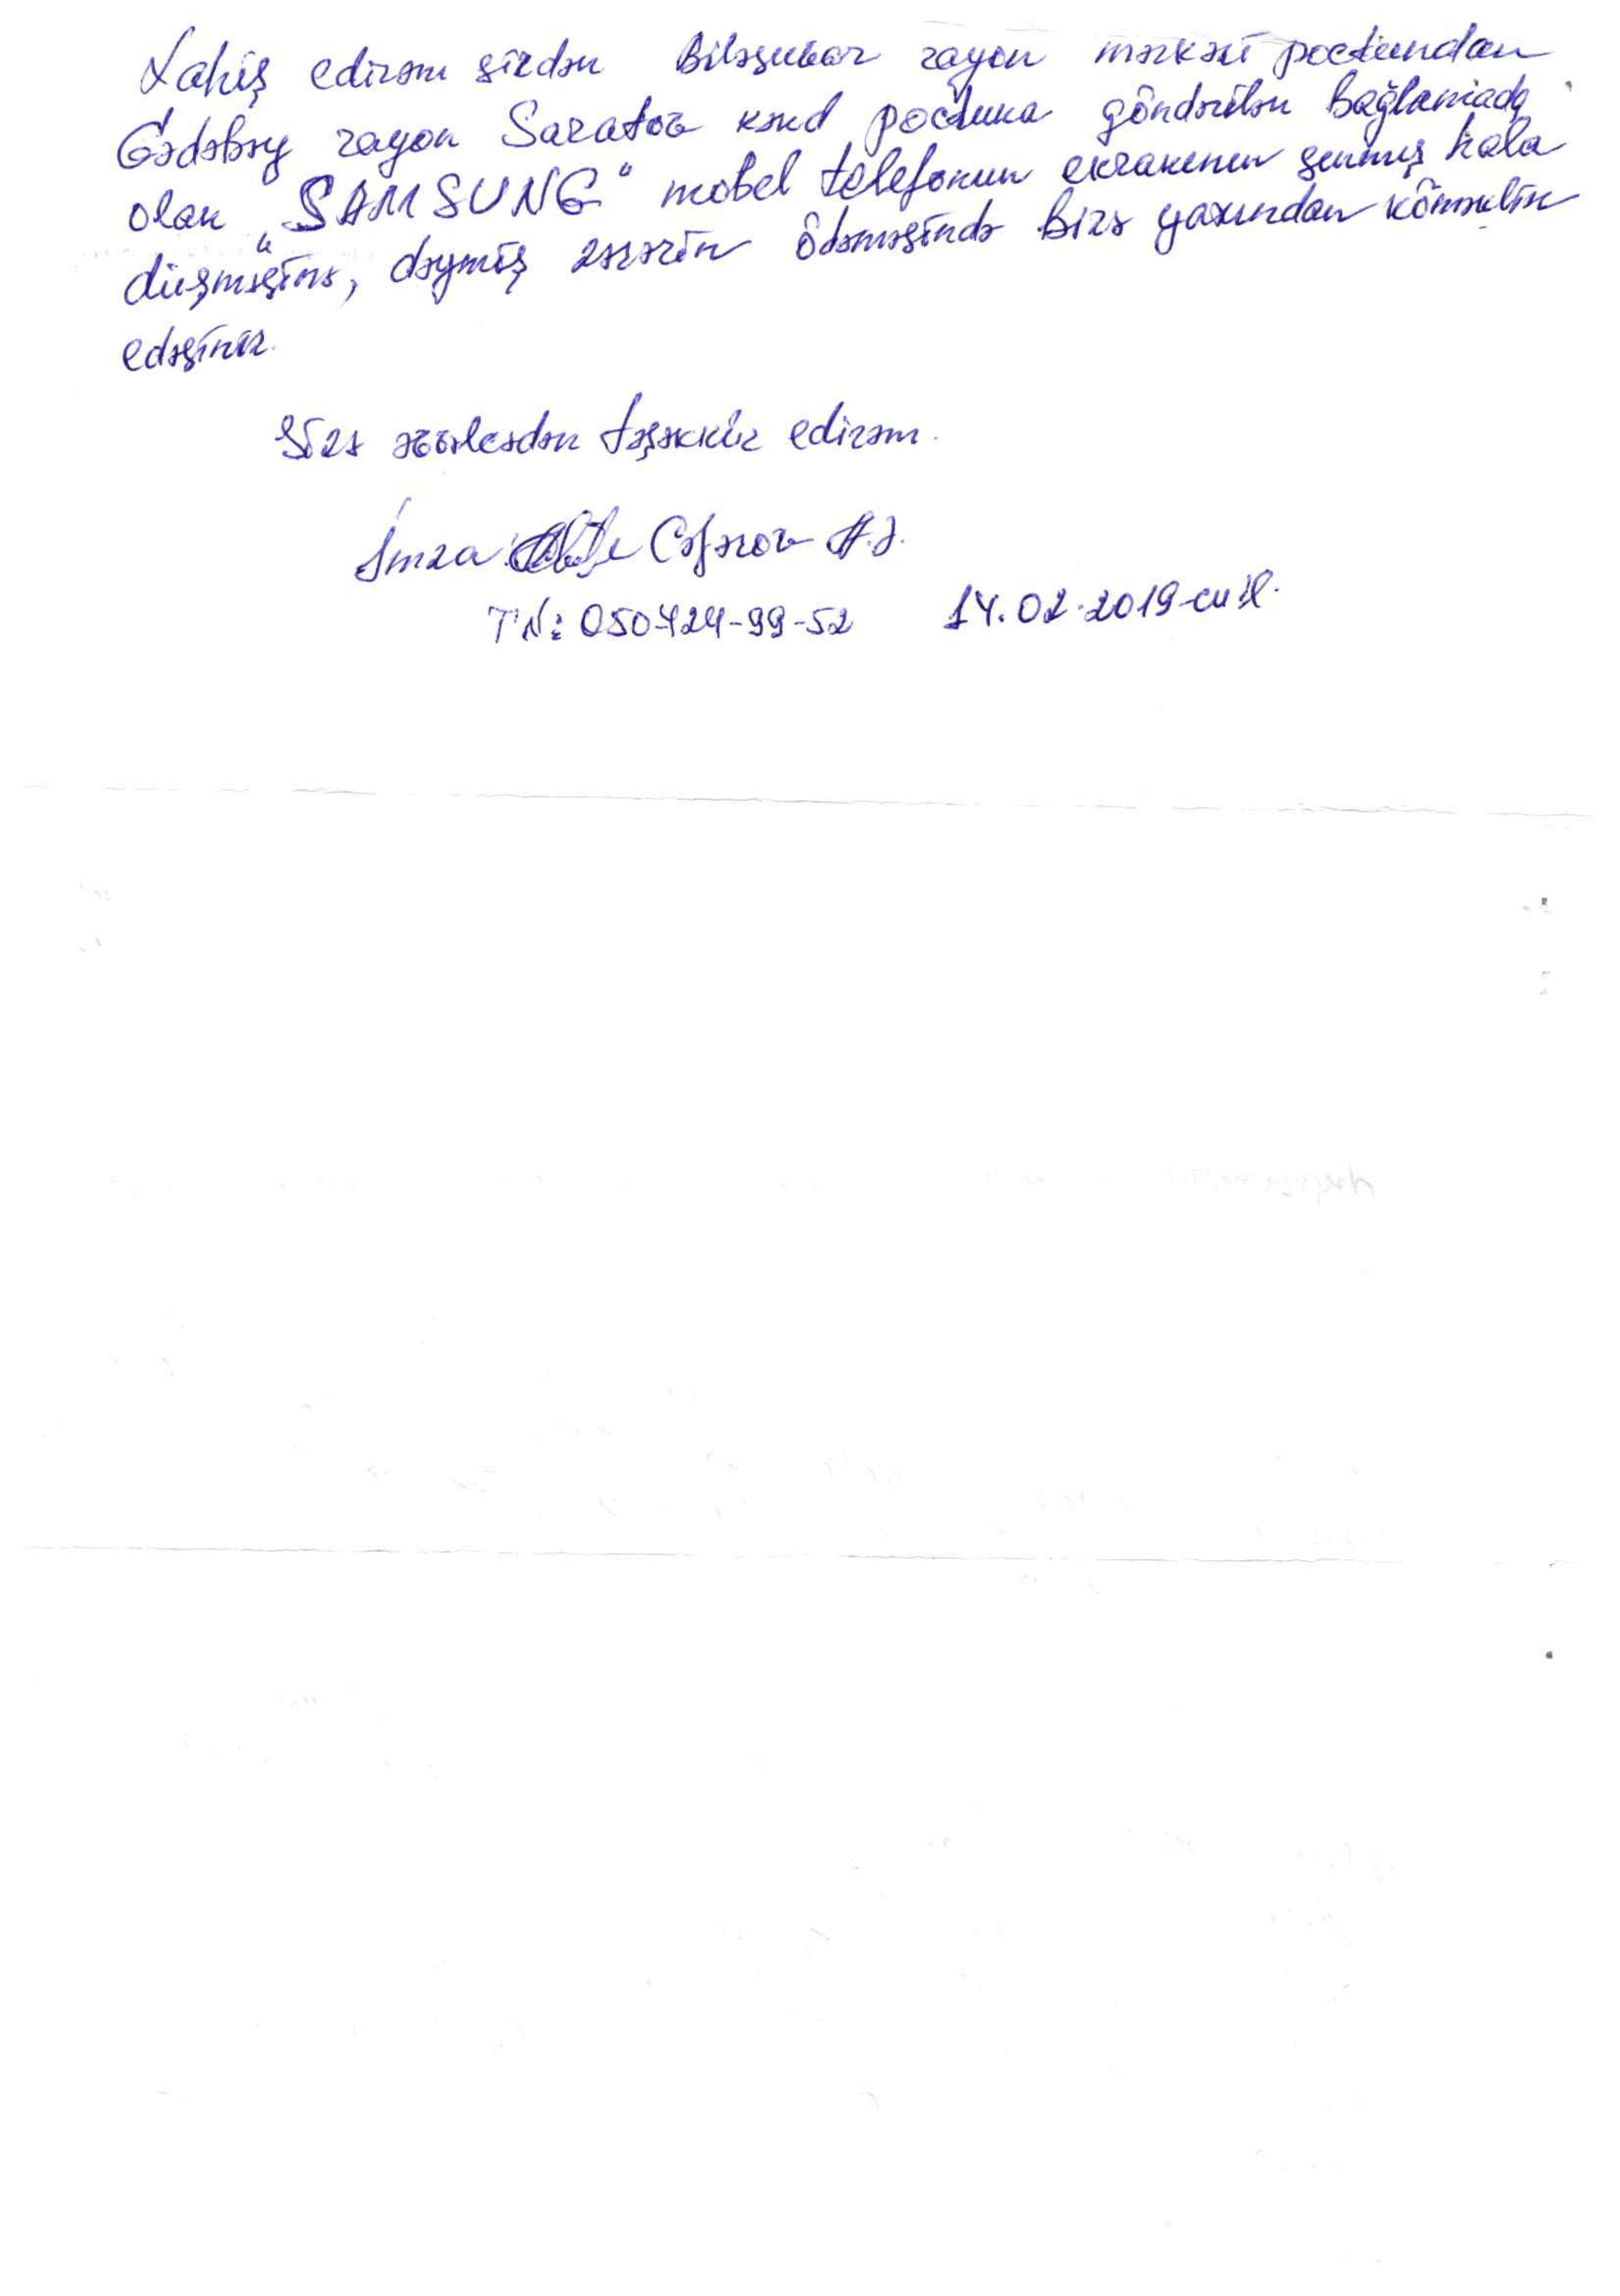 Xahiş edirəm sizdən Biləsuvar rayon mərkəzi poçtundan
Gədəbəy rayon Saratov kənd poçtuna göndərilən bağlamada
olan „SAMSUNG“ mobel telefonun ekranının sınmış hala
düşməsinə, dəymiş zərərin ödəməsində bizə yaxından köməklik
edəsiniz.
Sizə əvvəlcədən təşəkkür edirəm.
İmza: Cəfərov A.Ə.
TN: 050-424-99-52 14.02.2019-cu il.